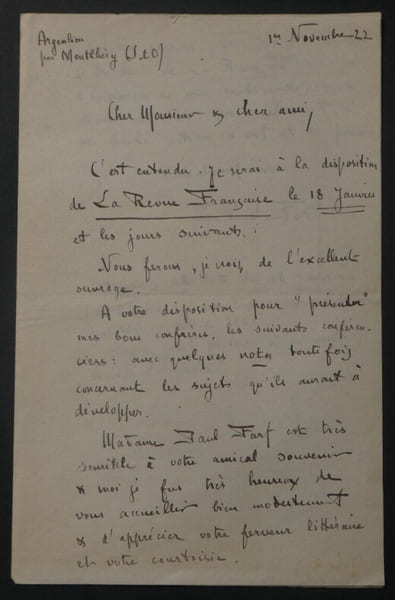 Argenlieu
par Montlhéry (S & O)
1er Novembre 22
Cher Monsieur & cher ami,
C'est entendu. Je serai à la disposition
de La Revue Française le 18 Janvier
et les jours suivants.
Nous ferons, je crois, de l'excellent
ouvrage.
A votre disposition pour "présenter"
mes bons confrères, les suivants conféren-
ciers : avec quelques notes toutefois
concernant les sujets qu'ils auront à
développer.
Madame Paul Fort est très
sensible à votre amical souvenir
& moi je fus très heureux de
vous accueillir bien modestement
& d'apprécier votre ferveur littéraire
et votre courtoisie.